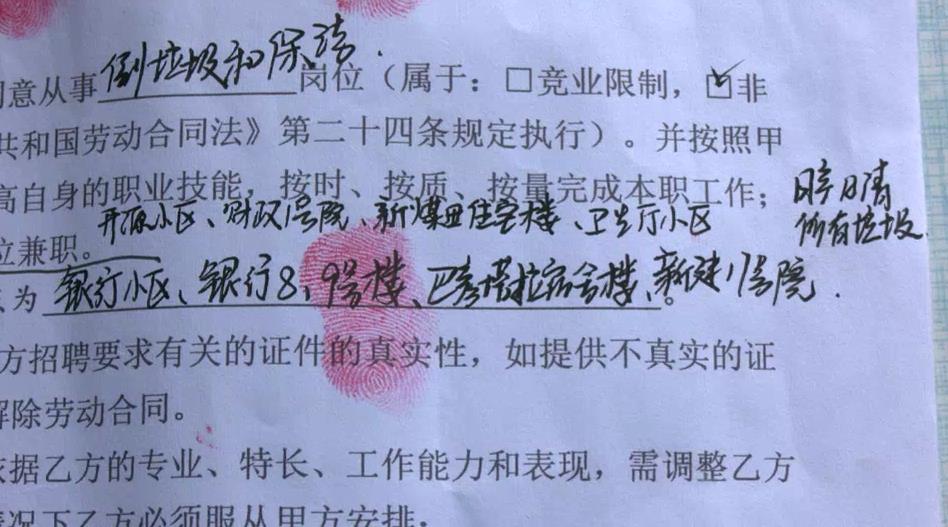 意从事倒垃圾和保洁.岗位（属于：□竞业限制，☑非
共和国劳动合同法》第二十四条规定执行）。并按照甲
高自身的职业技能，按时、按质、按量完成本职工作；日产日清
所有垃圾
开源小区、财政1号院、新煤田住宅楼、卫生厅小区
位兼职。
为银行小区、银行8、9号楼、巴彦塔拉宿舍楼、新建11号院.
方招聘要求有关的证件的真实性，如提供不真实的证
解除劳动合同。
依据乙方的专业、特长、工作能力和表现，需调整乙方
情况下乙方必须服从甲方安排；